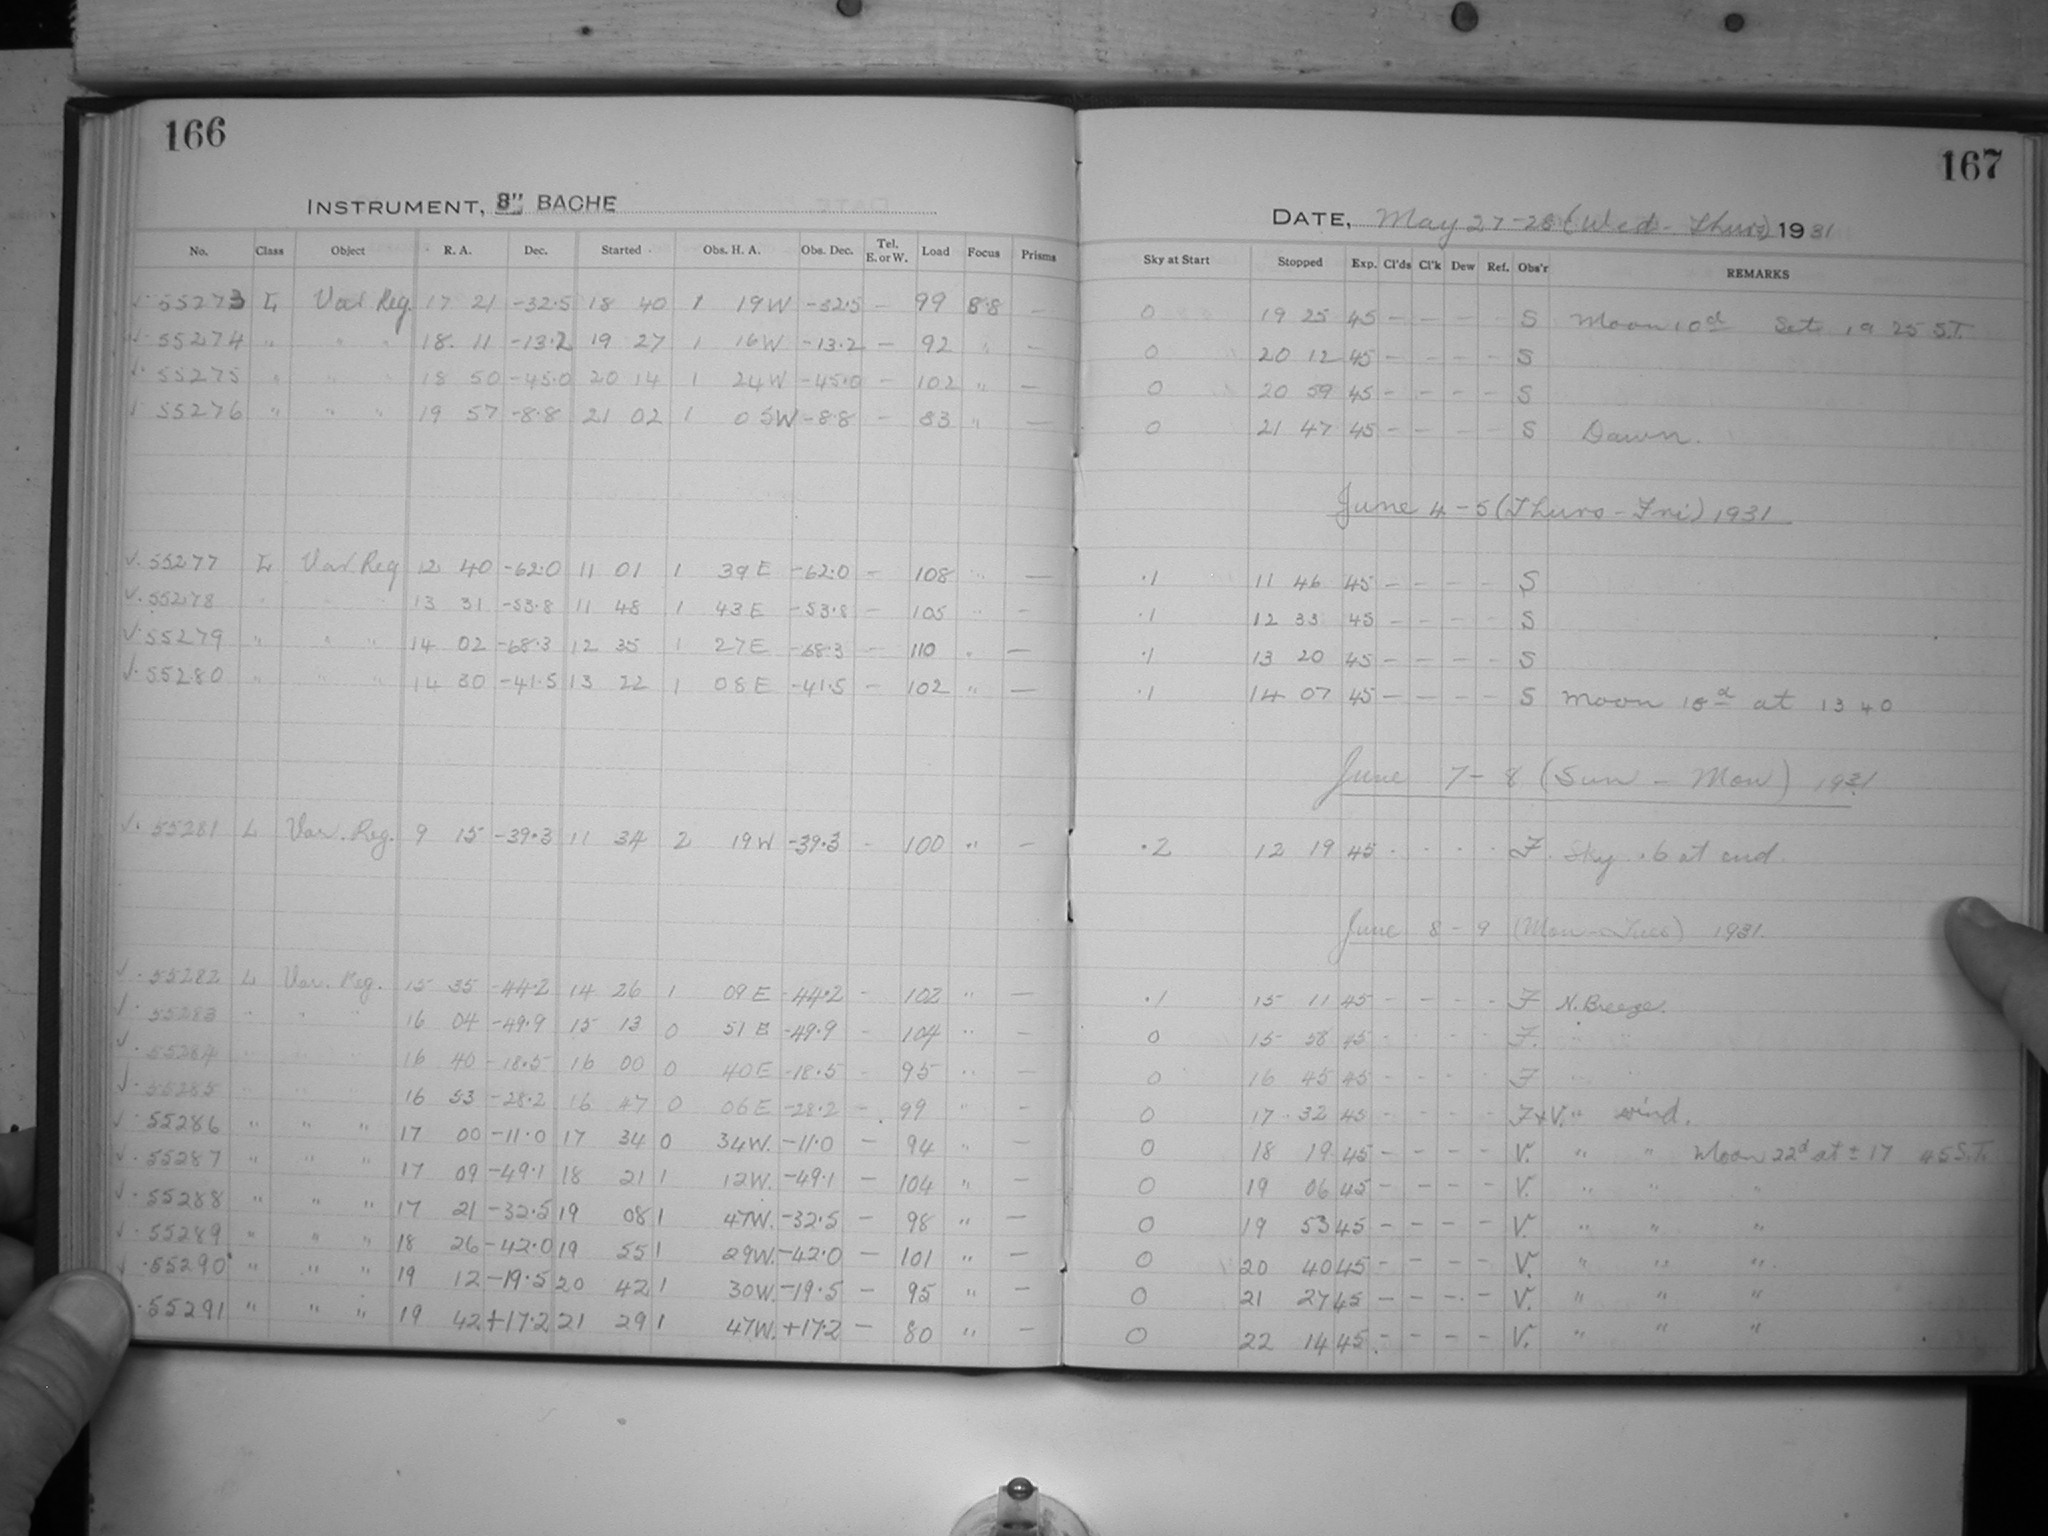 166
167
INSTRUMENT, 8" BACHE
DATE, May 27-28 (Wed - Thurs) 1931
No. Class Object R. A. Dec. Started Obs. H. A. Obs. Dec. Tel. E. or W. Load Focus Prisms Sky at Start Stopped Exp. Cl'ds Cl'k Dew Ref. Obs'r REMARKS
✓ 55273 L Var Reg. 17 21 -32.5 18 40 1 19 W -32.5 — 99 8.8 — 0 19 25 45 — — — - S Moon 10d Sets 19 25 S.T.
✓ 55274 " " " 18 11 -13.2 19 27 1 16 W -13.2 — 92 " — 0 20 12 45 — — — - S
✓ 55275 " " " 18 50 -45.0 20 14 1 24 W -45.0 - 102 " — 0 20 59 45 — — — - S
✓ 55276 " " " 19 57 -8.8 21 02 1 05 W -8.8 — 83 " — 0 21 47 45 — — — - S Dawn.
June 4 - 5 (Thurs - Fri) 1931
✓. 55277 L Var Reg 12 40 -62.0 11 01 1 39 E -62.0 - 108 " — .1 11 46 45 — — — — S
✓. 55278 " " " 13 31 -53.8 11 48 1 43 E -53.8 — 105 " — .1 12 33 45 — — — — S
✓. 55279 " " " 14 02 -68.3 12 35 1 27 E -68.3 — 110 " — .1 13 20 45 — — — - S
✓. 55280 " " " 14 30 -41.5 13 22 1 08 E -41.5 — 102 " — .1 14 07 45 — — — — S Moon 18d at 13 40
June 7 - 8 (Sun - Mon) 1931
✓. 55281 L Var. Reg. 9 15 -39.3 11 34 2 19 W -39.3 - 100 " — .2 12 19 45 - - - - F. Sky .6 at end.
June 8 - 9 (Mon - Tues) 1931.
✓. 55282 L Var. Reg. 15 35 -44.2 14 26 1 09 E -44.2 - 102 " — .1 15 11 45 - - - - F N. Breeze.
✓. 55283 " " " 16 04 -49.9 15 13 0 51 E -49.9 - 104 " — 0 15 58 45 - - - - F. " "
✓. 55284 " " " 16 40 -18.5 16 00 0 40 E -18.5 - 95 " — 0 16 45 45 - - - - F " "
✓. 55285 " " " 16 53 -28.2 16 47 0 06 E -28.2 - 99 " — 0 17 32 45 - - - - F+V. " wind.
✓. 55286 " " " 17 00 -11.0 17 34 0 34 W. -11.0 — 94 " — 0 18 19 45 - - - - V. " " Moon 22d at ± 17 45 S.T.
✓. 55287 " " " 17 09 -49.1 18 21 1 12 W. -49.1 — 104 " — 0 19 06 45 - - - - V. " " "
✓. 55288 " " " 17 21 -32.5 19 08 1 47 W. -32.5 — 98 " — 0 19 53 45 - - - - V. " " "
✓. 55289 " " " 18 26 -42.0 19 55 1 29 W. -42.0 — 101 " — 0 20 40 45 - - - - V. " " "
✓ .55290 " " " 19 12 -19.5 20 42 1 30 W. -19.5 — 95 " — 0 21 27 45 - - - - V. " " "
.55291 " " " 19 42 +17.2 21 29 1 47 W. +17.2 — 80 " — 0 22 14 45 - - - - V. " " "